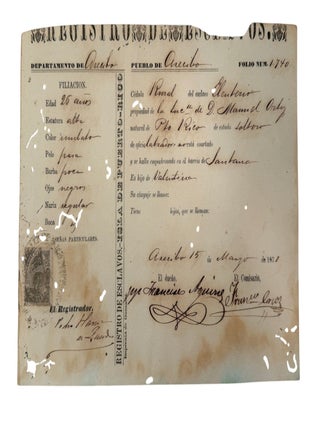 REGISTRO DE ESCLAVOS.
DEPARTAMENTO DE Arecibo PUEBLO DE Arecibo FOLIO NUM. 1,740
FILIACION.
Edad 26 años
Estatura alta
Color mulato
Pelo pasa
Barba poca
Ojos negros
Nariz regular
Boca
SEÑAS PARTICULARES.
El Registrador.
Pedro
REGISTRO DE ESCLAVOS.—ISLA DE PUERTO-RICO
Cédula Rural del esclavo Eleuterio
propiedad de la Suc.n de D. Manuel
natural de Pto Rico de estado soltero
de oficio labrador
y se halla empadronado en el barrio de Santana
Es hijo de Valentina
Su cónyuge se llama:
Tiene hijos, que se llaman:
Arecibo 15 de Marzo de 1871
El dueño, El Comisario,
Francisco